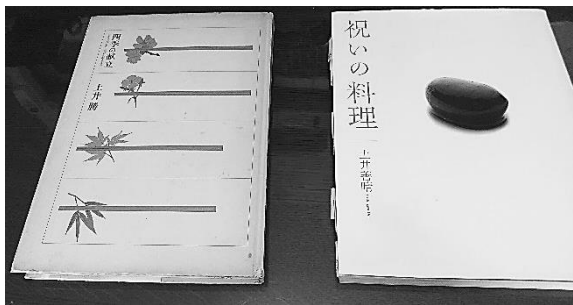 四季の献立
土井 勝
祝いの料理
土井善晴